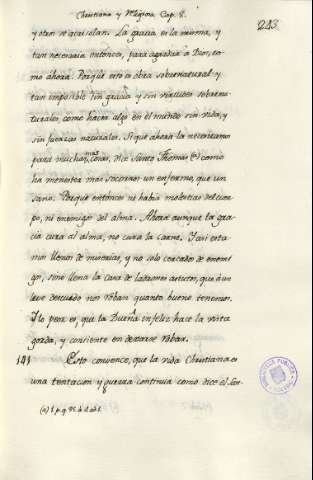 Christiana y Mystica. Cap. 8.
213
y otras se acrisolan. La gracia es la misma, y
tan necesaria entonces, para agradar a Dios, co-
mo ahora. Porque esto es obra sobrenatural y
tan imposible sin gracia y sin virtudes sobrena-
turales, como hacer algo en el mundo sin vida, y
sin fuerzas naturales. Si que ahora la necesitamos
para muchas mas cosas, dice Santo Thomas (a) como
ha menester mas socorros un enfermo, que un
sano. Porque entonces no habia molestias del cuer-
po, ni enemigos del alma. Ahora aunque la gra-
cia cura el alma, no cura la carne. Y asi esta-
mos llenos de miserias, y no solo cercados de enemi-
gos, sino llena la casa de ladrones astutos, que à un
leve descuido nos roban quanto bueno tenemos.
Y lo peor es, que la Dueña infeliz hace la vista
gorda, y consiente en dexarse robar.
141 Esto convence, que la vida Christiana es
una tentacion y guerra continua como dice el San-
(a) 1. p. q. 95. a. 4. ad 1.
BIBLIOTECA PUBLICA